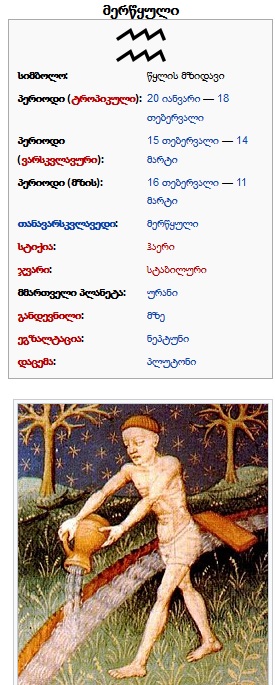 მერწყული
სიმბოლო: წყლის მზიდავი
პერიოდი (ტროპიკული): 20 იანვარი — 18
თებერვალი
პერიოდი 15 თებერვალი — 14
(ვარსკვლავური): მარტი
პერიოდი (მზის): 16 თებერვალი — 11
მარტი
თანავარსკვლავედი: მერწყული
სტიქია: ჰაერი
ჯვარი: სტაბილური
მმართველი პლანეტა: ურანი
განდევნილი: მზე
ეგზალტაცია: ნეპტუნი
დაცემა: პლუტონი